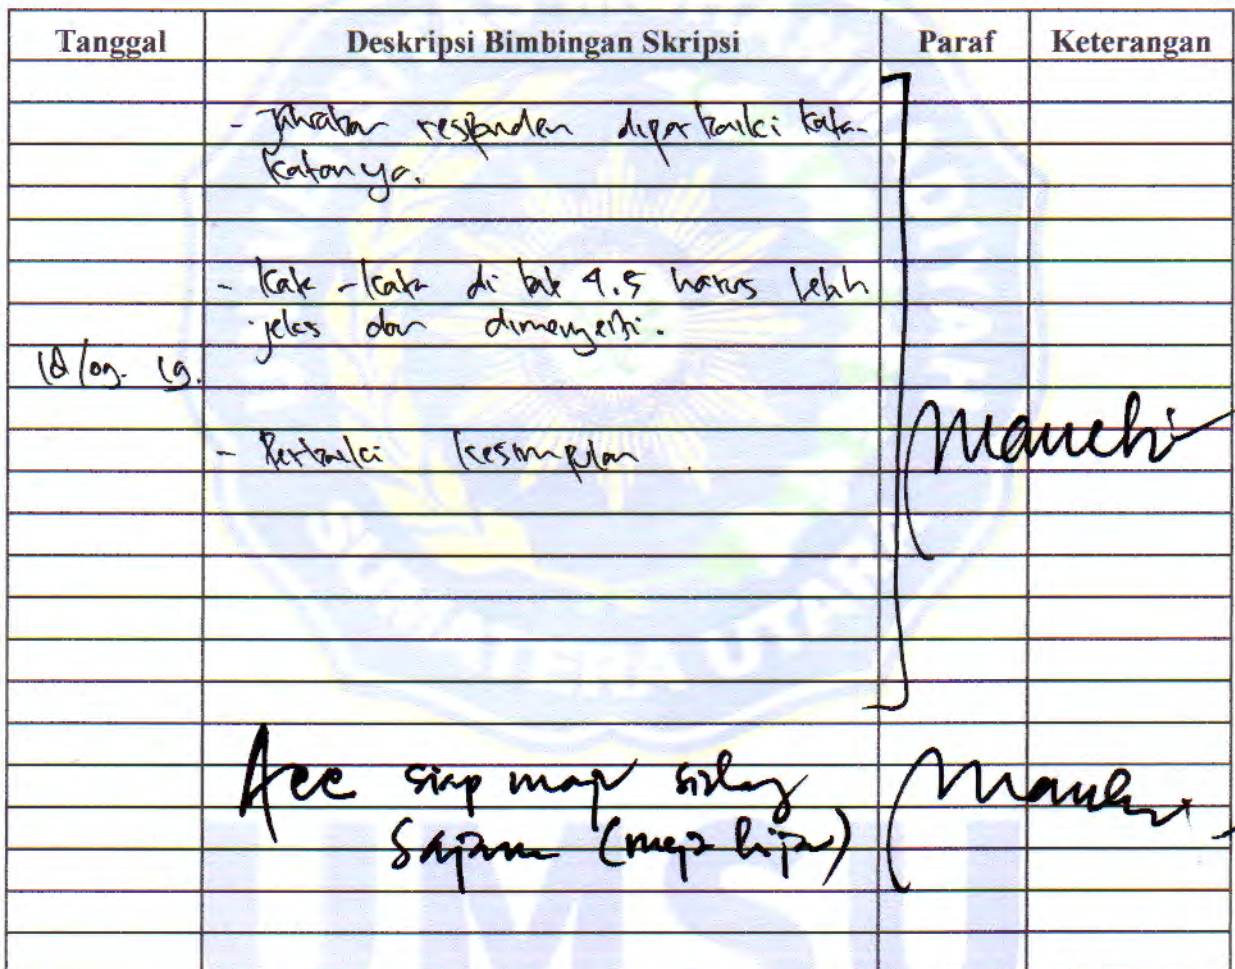 Tanggal Deskripsi Bimbingan Skripsi Paraf Keterangan
- Jawaban responden diperbaiki kata-
katanya.
- Kata-kata di bab 4.5 harus lebih
jelas dan dimengerti.
- Perbaiki kesimpulan.
Acc siap maju sidang
Sarjana (meja hijau)
SUMATERA UTARA
UMSU